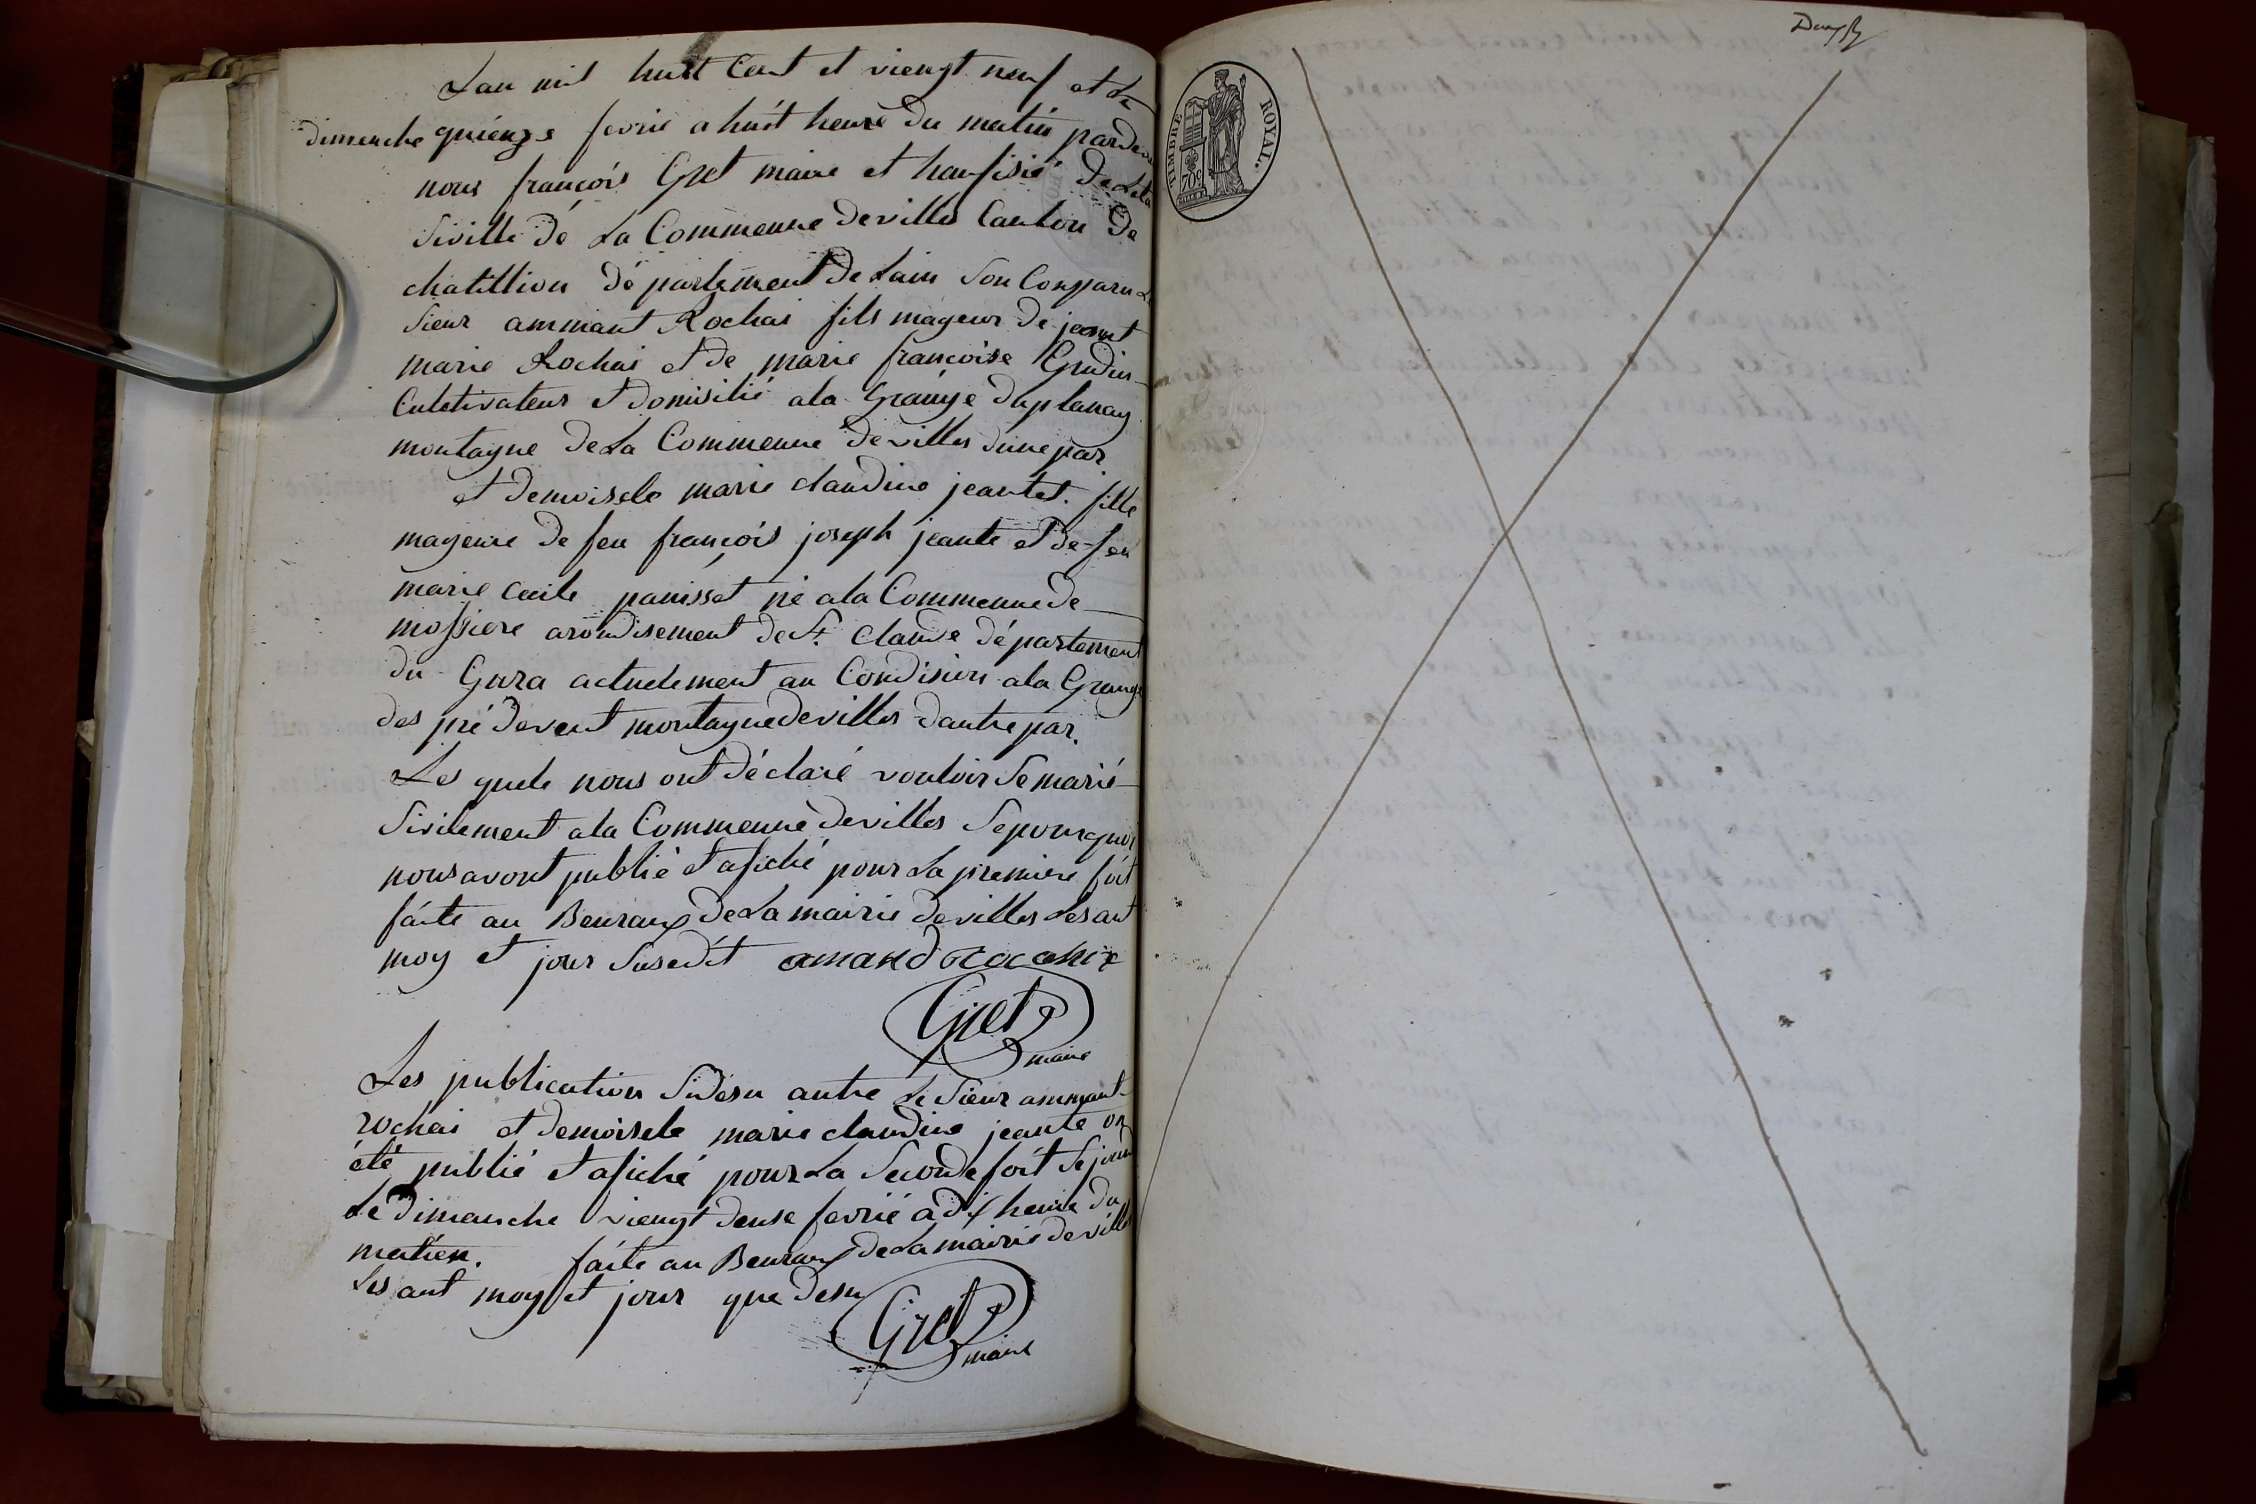 Lan mil huit Cent et viengt neuf et le
dimenche quienze fevrié a huit heure du matin pardev
nous françois Gret maire et haufisié de Leta
siville dé La Commeune devilles Canton de
chatillion département de Lain Son Comparu Le
sieur ammant Rochai fils mageur de jeant
marie Rochai et de marie françoise Grudin
Culetivateur et domisilié ala Grange duplanay
montagne de La Commeune devilles dunepar
et demoisele marie claudine jeantet fille
mageure de feu françois joseph jeante et de feu
marie Cecile panisset né ala Commeune de
mossiere arondisement de St. Claude département
du Gura actuelement an Condision ala Grange
des pré devent montagne devilles dautrepar.
Les quele nous ont déclaré vouloir se marié
sivilement ala Commeune devilles Sepourquoi
nous avont publié et afiché pour La premiere foit
faite au Beuraux de La mairie devilles Les ant
moy et jour Susedit amand rocohix
Gret
maire
Les publication Sidesu antre Le Sieur ammant
rochai et demoisele marie claudine jeante on
été publié et afiché pour La Seconde foit Sejour
Le dimanche viengt deuse fevrié a dix heure du
matien. faite au Beuraux de La mairie deville
Les ant moy et jour que desu
Gret
maire
TIMBRE ROYAL.
70c